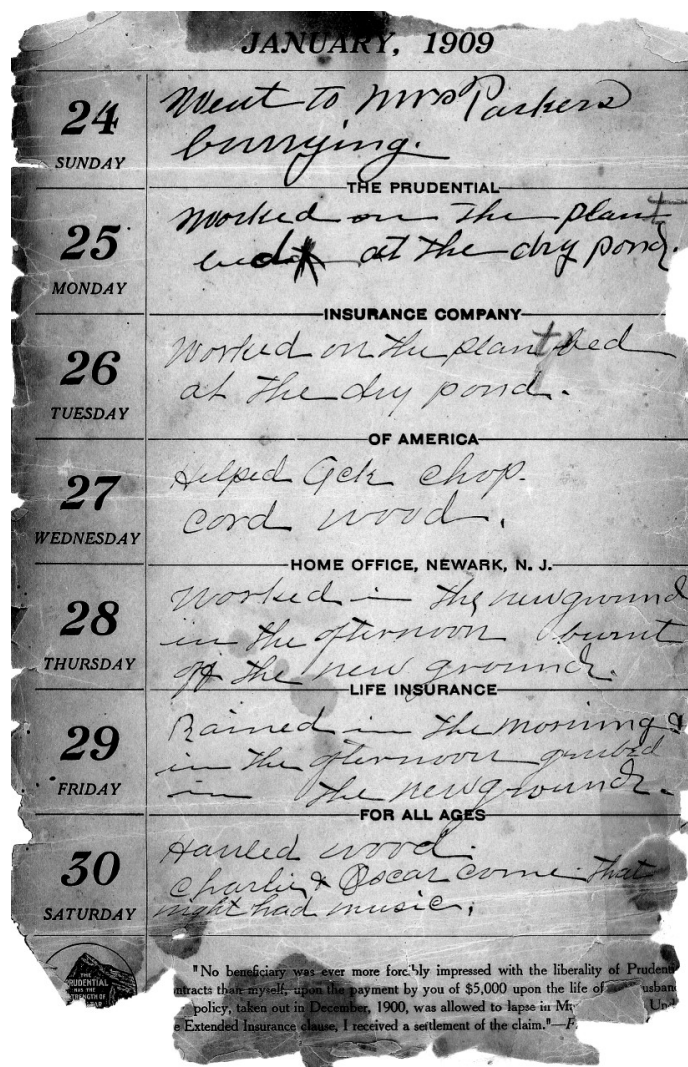 JANUARY, 1909
24
SUNDAY
Went to Mrs Parkers
burrying.
THE PRUDENTIAL
25
MONDAY
Worked on the plant
bed at the dry pond.
INSURANCE COMPANY
26
TUESDAY
Worked on the plant bed
at the dry pond.
OF AMERICA
27
WEDNESDAY
Helped Ack chop.
cord wood.
HOME OFFICE, NEWARK, N. J.
28
THURSDAY
Worked in the newground
in the afternoon burnt
off the new ground.
LIFE INSURANCE
29
FRIDAY
Rained in the morning &
in the afternoon grubed
in the newground.
FOR ALL AGES
30
SATURDAY
Hauled wood.
Charlie & Oscar come that
night had music.
THE
PRUDENTIAL
HAS THE
STRENGTH OF
"No beneficiary was ever more forcibly impressed with the liberality of Prudenti
ntracts than myself, upon the payment by you of $5,000 upon the life of usban
policy, taken out in December, 1900, was allowed to lapse in M Und
e Extended Insurance clause, I received a settlement of the claim."—F.